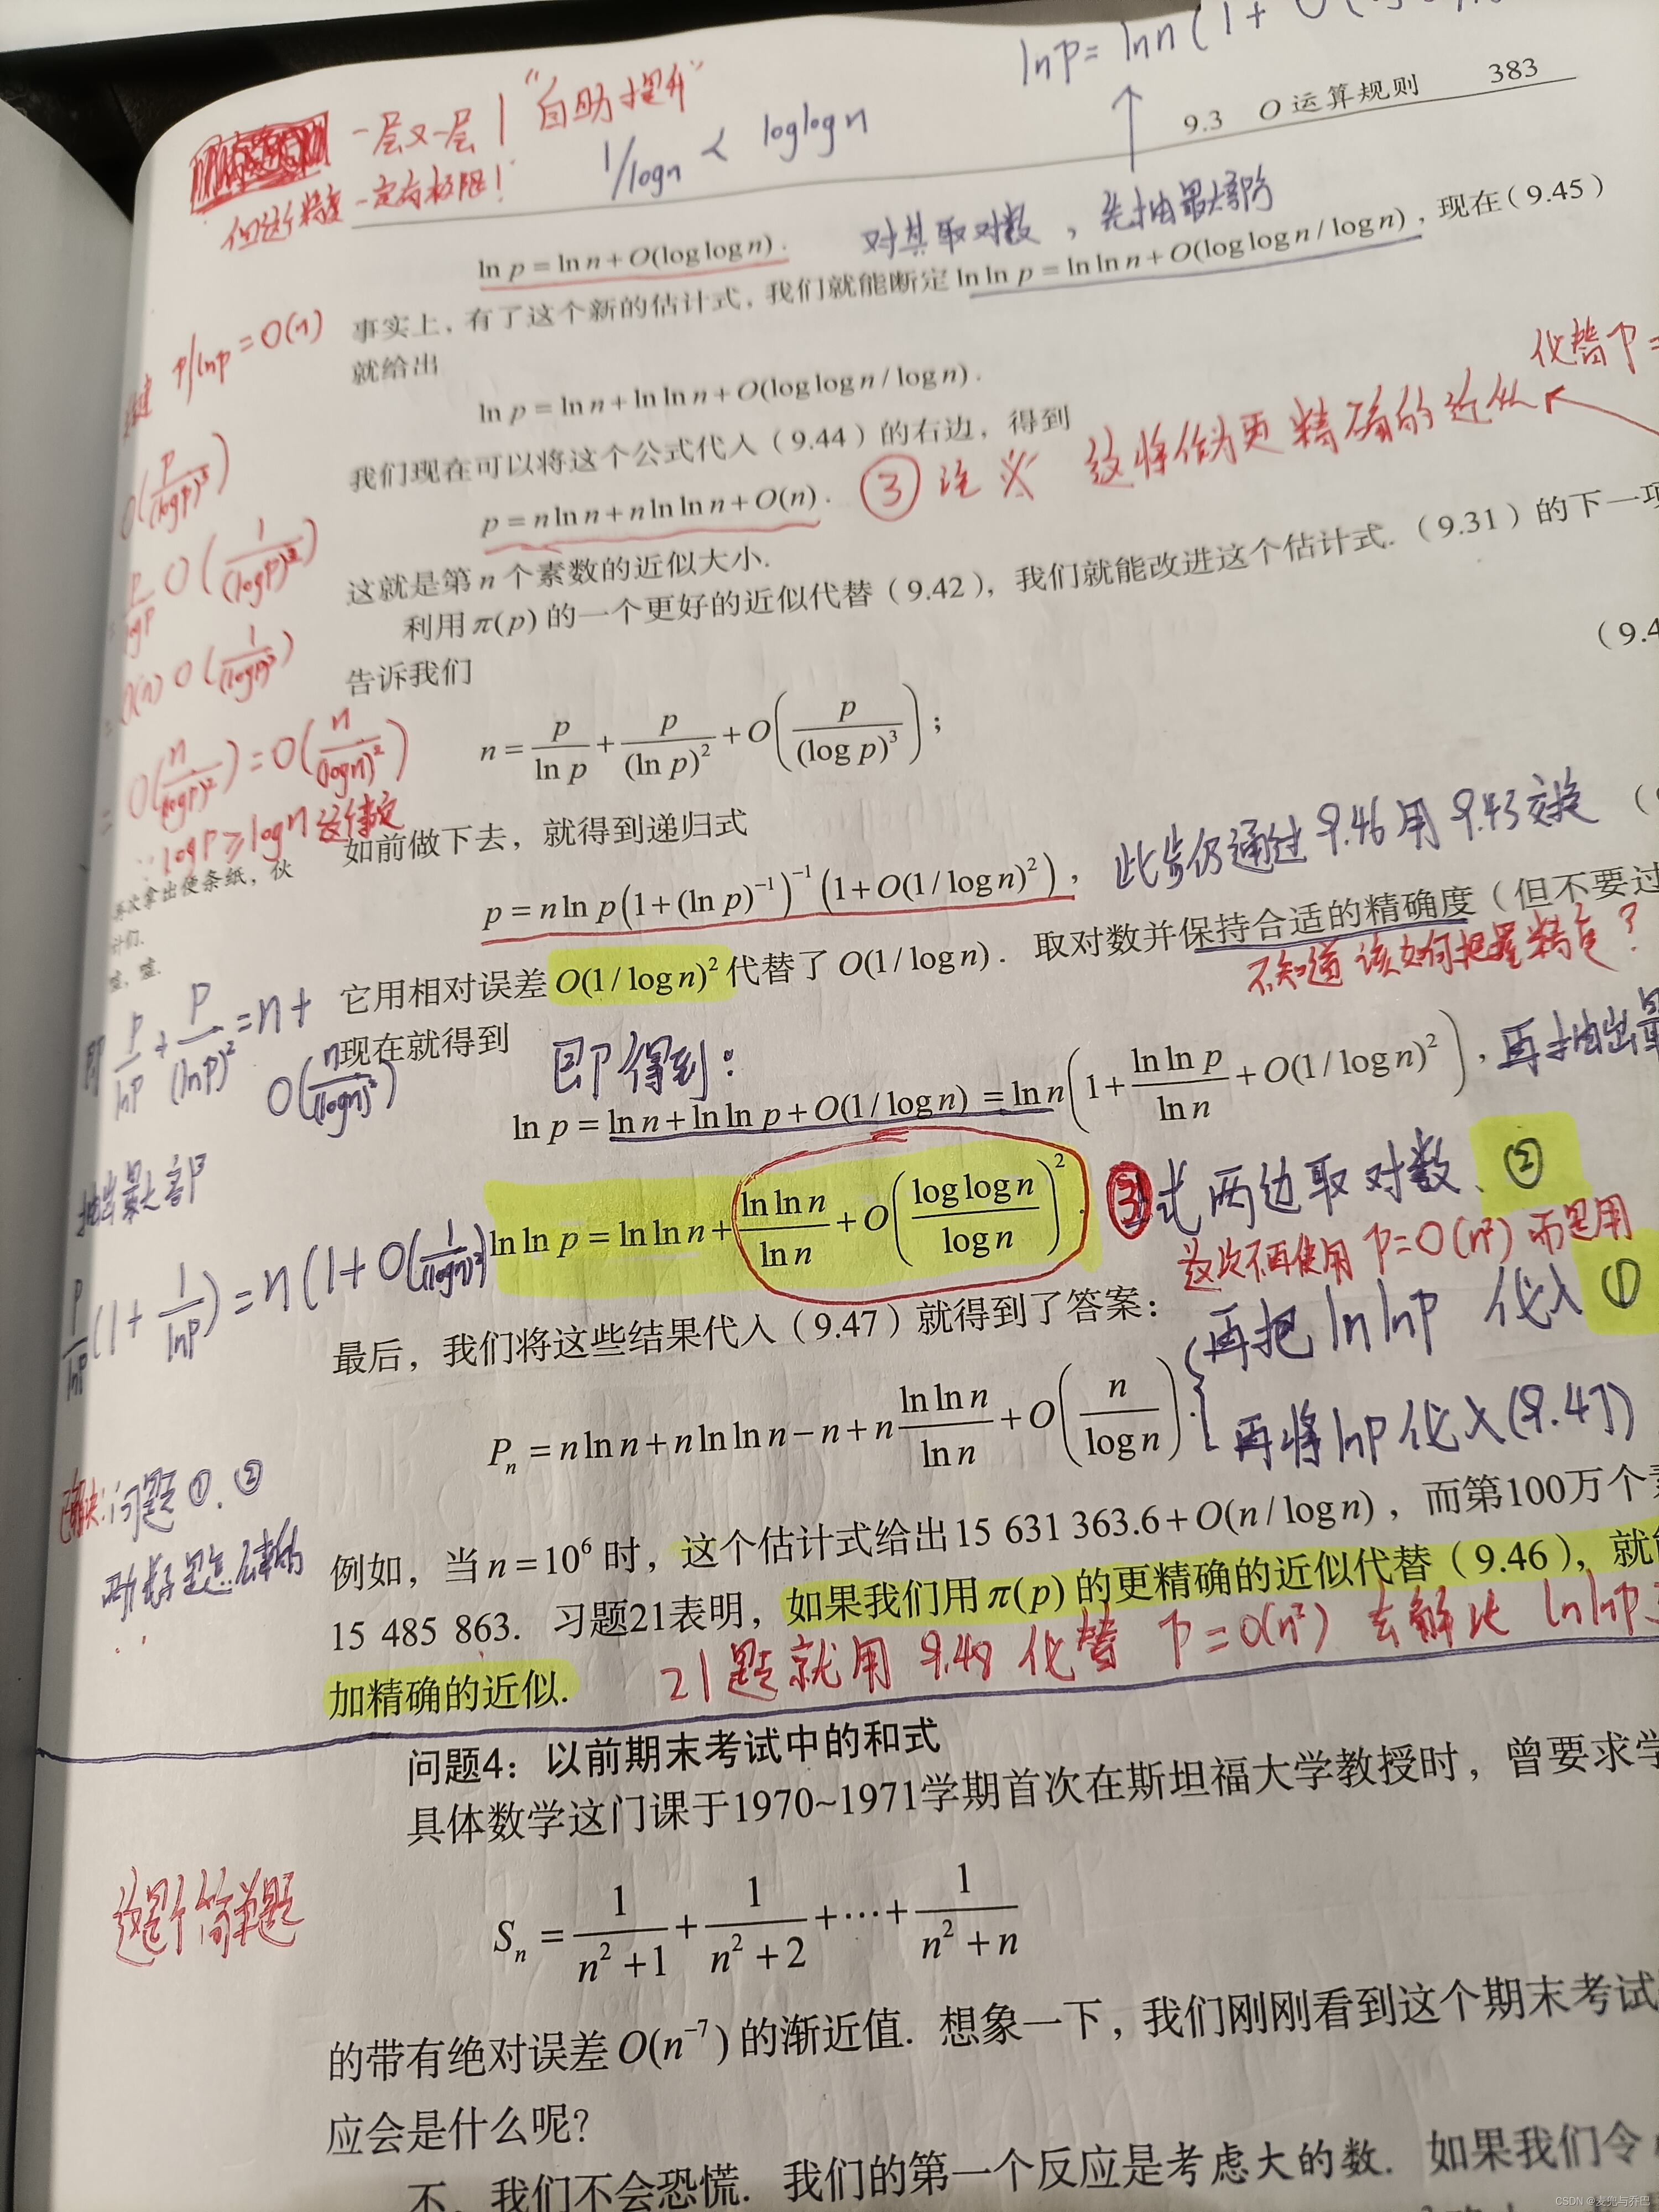 lnp = lnn(1+O(
9.3 O 运算规则 383
一层又一层! “自助提升”
但这个精度一定有极限!
1/logn < loglogn
对其取对数,先抽最大部分
ln p = ln n + O(log log n).
事实上,有了这个新的估计式,我们就能断定 ln ln p = ln ln n + O(log log n / log n),现在(9.45)
就给出
p/lnp = O(n)
ln p = ln n + ln ln n + O(log log n / log n).
代替 P=
我们现在可以将这个公式代入(9.44)的右边,得到
p = n ln n + n ln ln n + O(n). ③ 这将作为更精确的近似
O(p/(logp)³)
这就是第 n 个素数的近似大小.
O(1/(logp)²)
利用 π(p) 的一个更好的近似代替(9.42),我们就能改进这个估计式.(9.31)的下一项
告诉我们
(9.4
= O(n) O(1/(logp)²)
n = p/ln p + p/(ln p)² + O(p/(log p)³);
= O(n/(logp)²) = O(n/(logn)²)
∵ logp ≥ logn
如前做下去,就得到递归式
再次拿出便条纸,伙
计们.
嘘,嘘.
p = n ln p(1+(ln p)⁻¹)⁻¹(1+O(1/log n)²), 此步仍通过9.46用9.45交换
它用相对误差 O(1/log n)² 代替了 O(1/log n). 取对数并保持合适的精确度(但不要过
不知道该如何把握精度?
现在就得到
即 p/lnp + p/(lnp)² = n + O(n/(logn)²)
即得到:
ln p = ln n + ln ln p + O(1/log n) = ln n(1 + ln ln p/ln n + O(1/log n)²), 再抽出最
抽出最大部
p/lnp(1+1/lnp) = n(1+O(1/(logn)²)
ln ln p = ln ln n + ln ln n/ln n + O(log log n/log n)². ③式两边取对数、②
这次不再使用 P=O(n²) 而是用
最后,我们将这些结果代入(9.47)就得到了答案: 再把 lnlnp 代入 ①
Pₙ = n ln n + n ln ln n − n + n ln ln n/ln n + O(n/log n). 再将 lnp 代入(9.47)
已解决:问题①.②
例如,当 n = 10⁶ 时,这个估计式给出15 631 363.6 + O(n/log n),而第100万个素
15 485 863. 习题21表明,如果我们用 π(p) 的更精确的近似代替(9.46),就能
加精确的近似. 21题就用 9.48 代替 P=O(n²) 去解此 lnlnp
问题4:以前期末考试中的和式
具体数学这门课于1970~1971学期首次在斯坦福大学教授时,曾要求学
这是个简单题
Sₙ = 1/(n²+1) + 1/(n²+2) + ⋯ + 1/(n²+n)
的带有绝对误差 O(n⁻⁷) 的渐近值. 想象一下,我们刚刚看到这个期末考试
应会是什么呢?
不,我们不会恐慌. 我们的第一个反应是考虑大的数. 如果我们令
CSDN @麦兜与乔巴